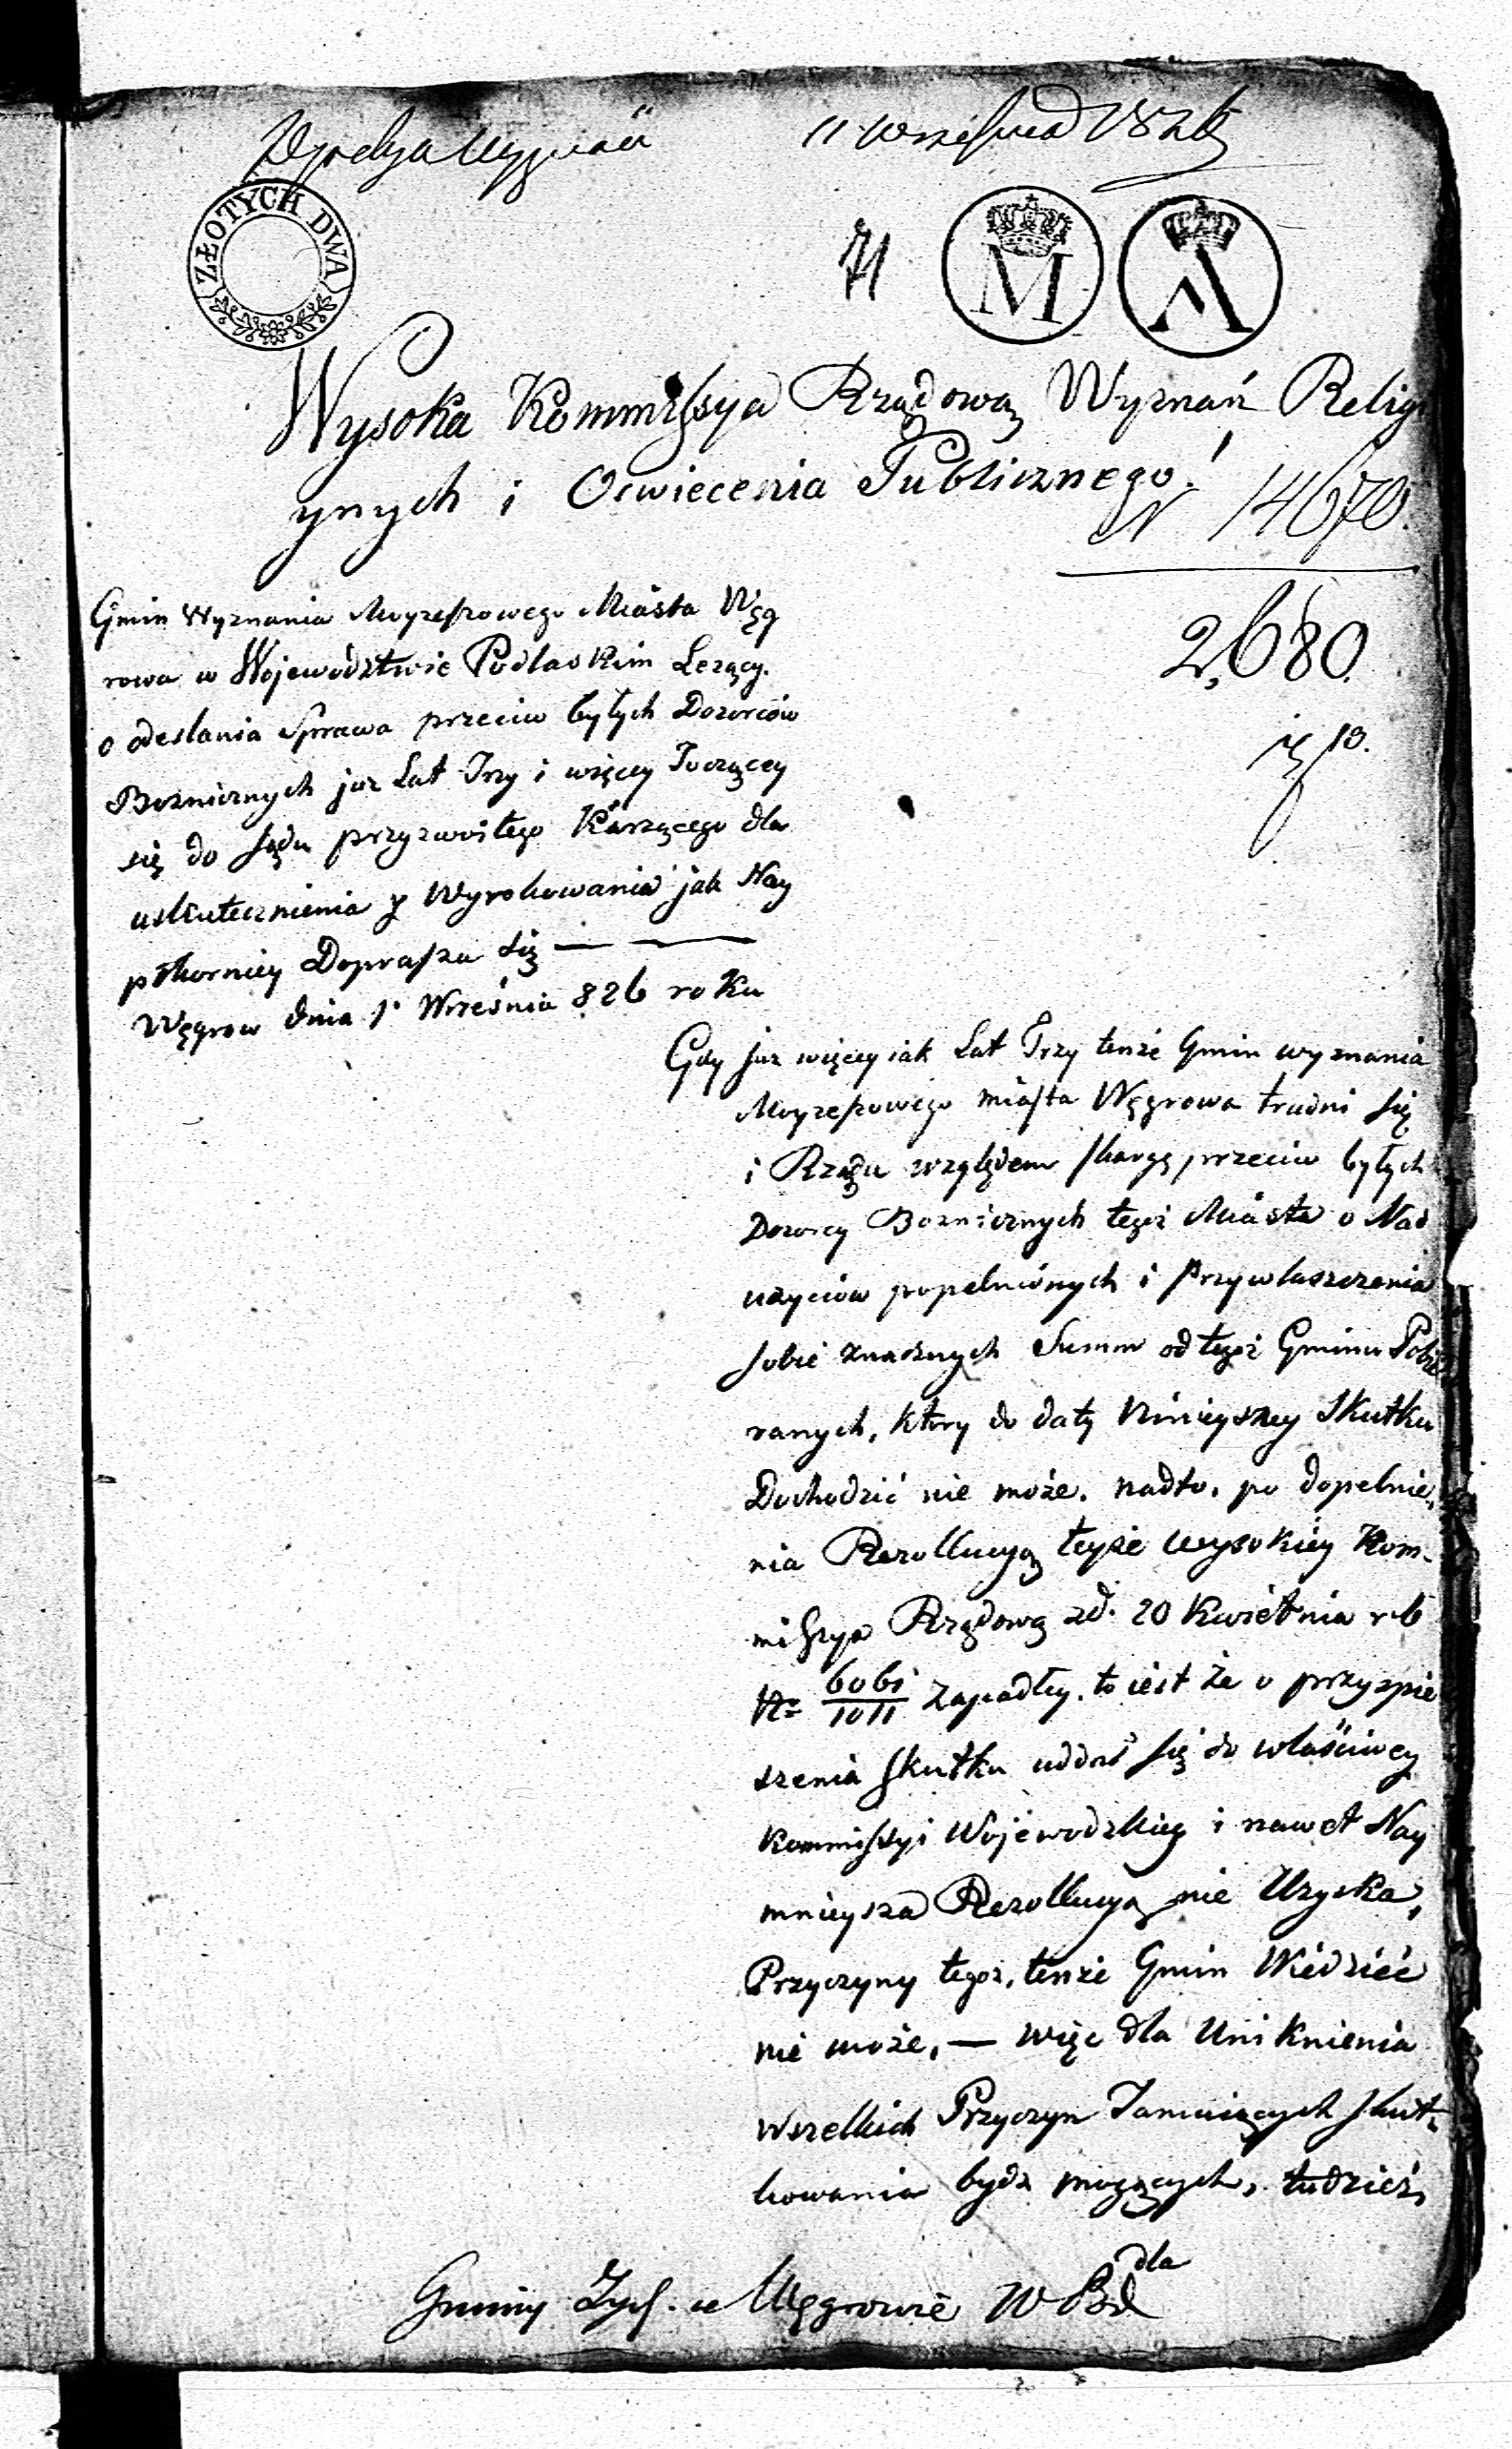 Wydział Wyznań
11 Września 1826
ZŁOTYCH DWA
71
M A
Wysoka Kommissya Rządowa Wyznań Religi
ynych i Oświecenia Publicznego!
N 14670.
2,680
Gmin Wyznania Moyzeszowego Miasta Węg
rowa w Województwie Podlaskim Lezący.
o odesłania Sprawa przeciw byłych Dozorców
Boznicznych juz Lat Trzy i więcey Toczącey
się do sądu przyzwoitego Karzącego dla
uskutecznienia y Wyrokowania jak Nay
pthorniey Doprasza się — —
Węgrow dnia 1 Września 826 roku
Gdy juz więcey iak Lat Trzy tenże Gmin wyznania
Moyzeszowego miasta Węgrowa trudni się
i Rządu względem skargę przeciw byłych
Dozorcy Boznicznych tegoż Miasta o Nad
uzyciów popełnionych i Przywłaszczenia
sobie znacznych Summ od tegoż Gminu Pobie
ranych, który do daty Ninieyszey Skutku
Dochodzić nie może. nadto, po dopełnie,
nia Rezollucyą teyże wysokiéy Kom-
missyą Rządową zd. 20 Kwietnia r. b
No 6061/1011 zapadłey. to iest że o przyspie
szenia skutku uddał się do właściwey
Kommissyi Wojewodzkiey i nawet Nay
mnieysza Rezollucyą nie Uzyska,
Przyczyny tegoz, tenże Gmin Wiedzieć
nie może, — więc dla Uniknienia
wszelkich Przyczyn Tamuiących skut-
kowania bydz mogących, tudzież,
Gminy Zyd. w Węgrowie W Pod
dla